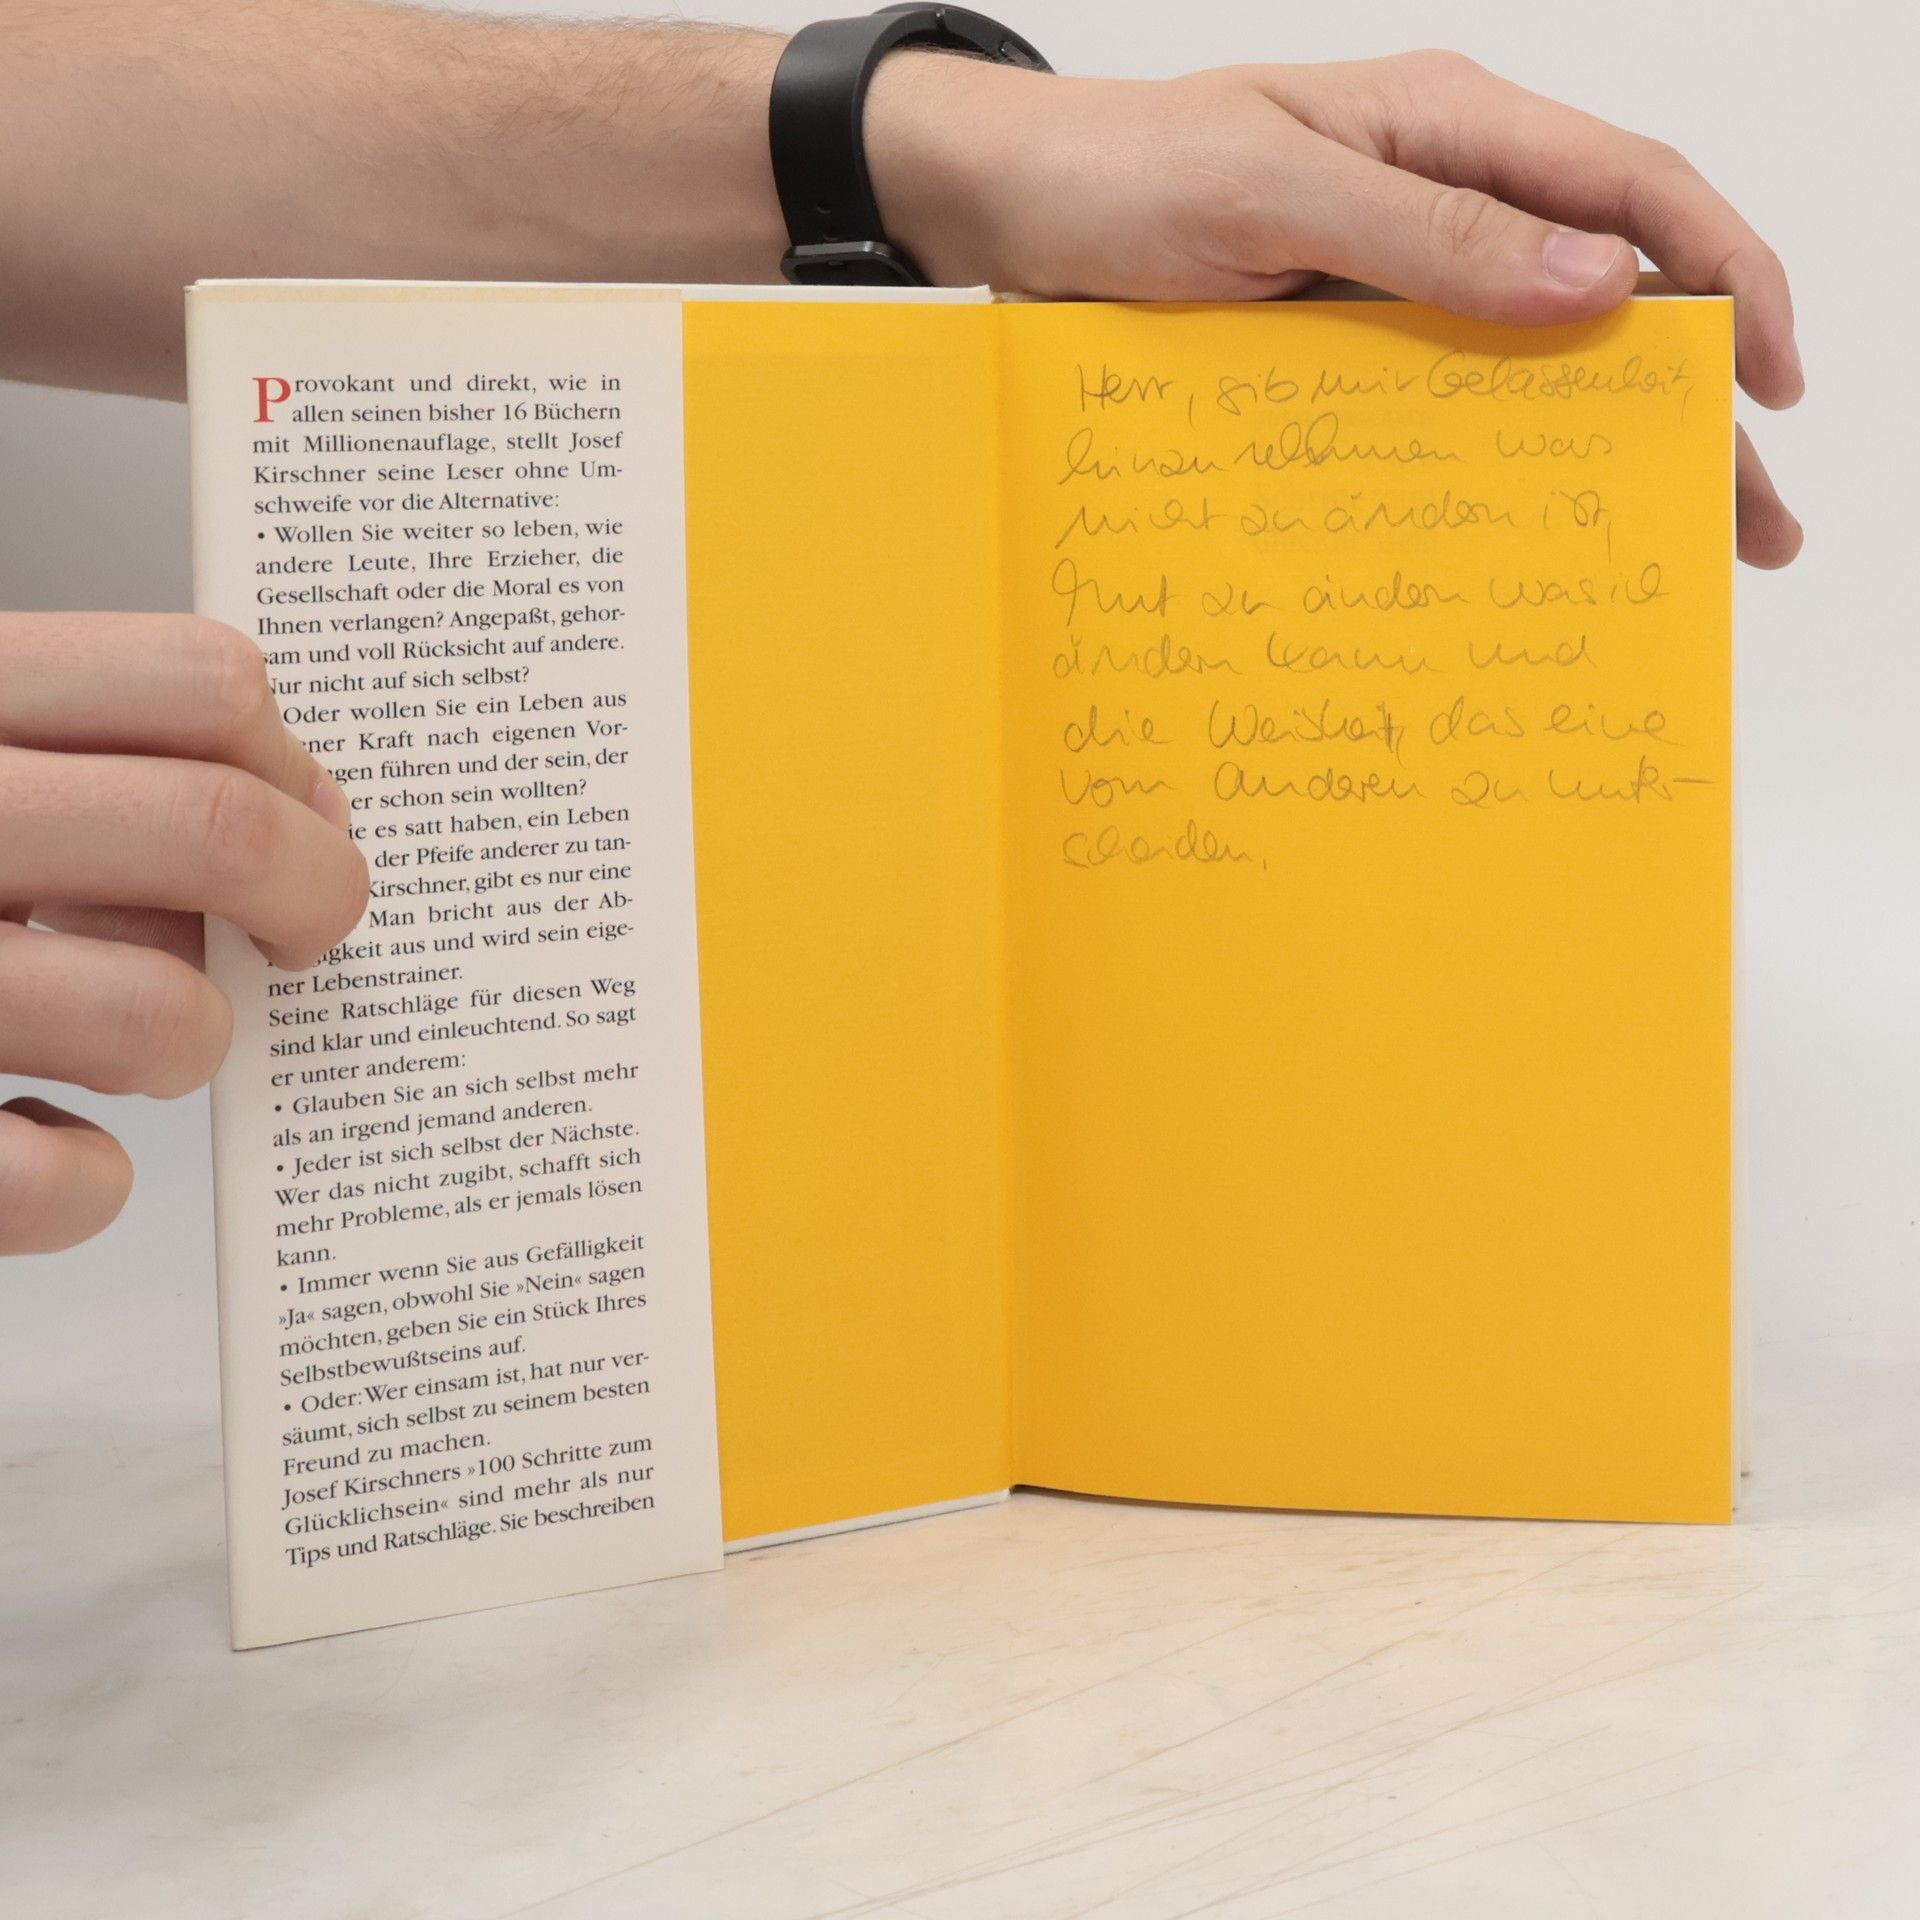 Provokant und direkt, wie in
allen seinen bisher 16 Büchern
mit Millionenauflage, stellt Josef
Kirschner seine Leser ohne Um-
schweife vor die Alternative:
• Wollen Sie weiter so leben, wie
andere Leute, Ihre Erzieher, die
Gesellschaft oder die Moral es von
Ihnen verlangen? Angepaßt, gehor-
sam und voll Rücksicht auf andere.
Nur nicht auf sich selbst?
Oder wollen Sie ein Leben aus
Kraft nach eigenen Vor-
führen und der sein, der
er schon sein wollten?
es satt haben, ein Leben
der Pfeife anderer zu tan-
Kirschner, gibt es nur eine
Man bricht aus der Ab-
aus und wird sein eige-
ner Lebenstrainer.
Seine Ratschläge für diesen Weg
sind klar und einleuchtend. So sagt
er unter anderem:
• Glauben Sie an sich selbst mehr
als an irgend jemand anderen.
• Jeder ist sich selbst der Nächste.
Wer das nicht zugibt, schafft sich
mehr Probleme, als er jemals lösen
kann.
• Immer wenn Sie aus Gefälligkeit
»Ja« sagen, obwohl Sie »Nein« sagen
möchten, geben Sie ein Stück Ihres
Selbstbewußtseins auf.
• Oder: Wer einsam ist, hat nur ver-
säumt, sich selbst zu seinem besten
Freund zu machen.
Josef Kirschners »100 Schritte zum
Glücklichsein« sind mehr als nur
Tips und Ratschläge. Sie beschreiben
Herr, gib mir Gelassenheit,
hinzunehmen was
nicht zu ändern ist,
Mut zu ändern was ich
ändern kann und
die Weisheit, das eine
vom Anderen zu unter-
scheiden.